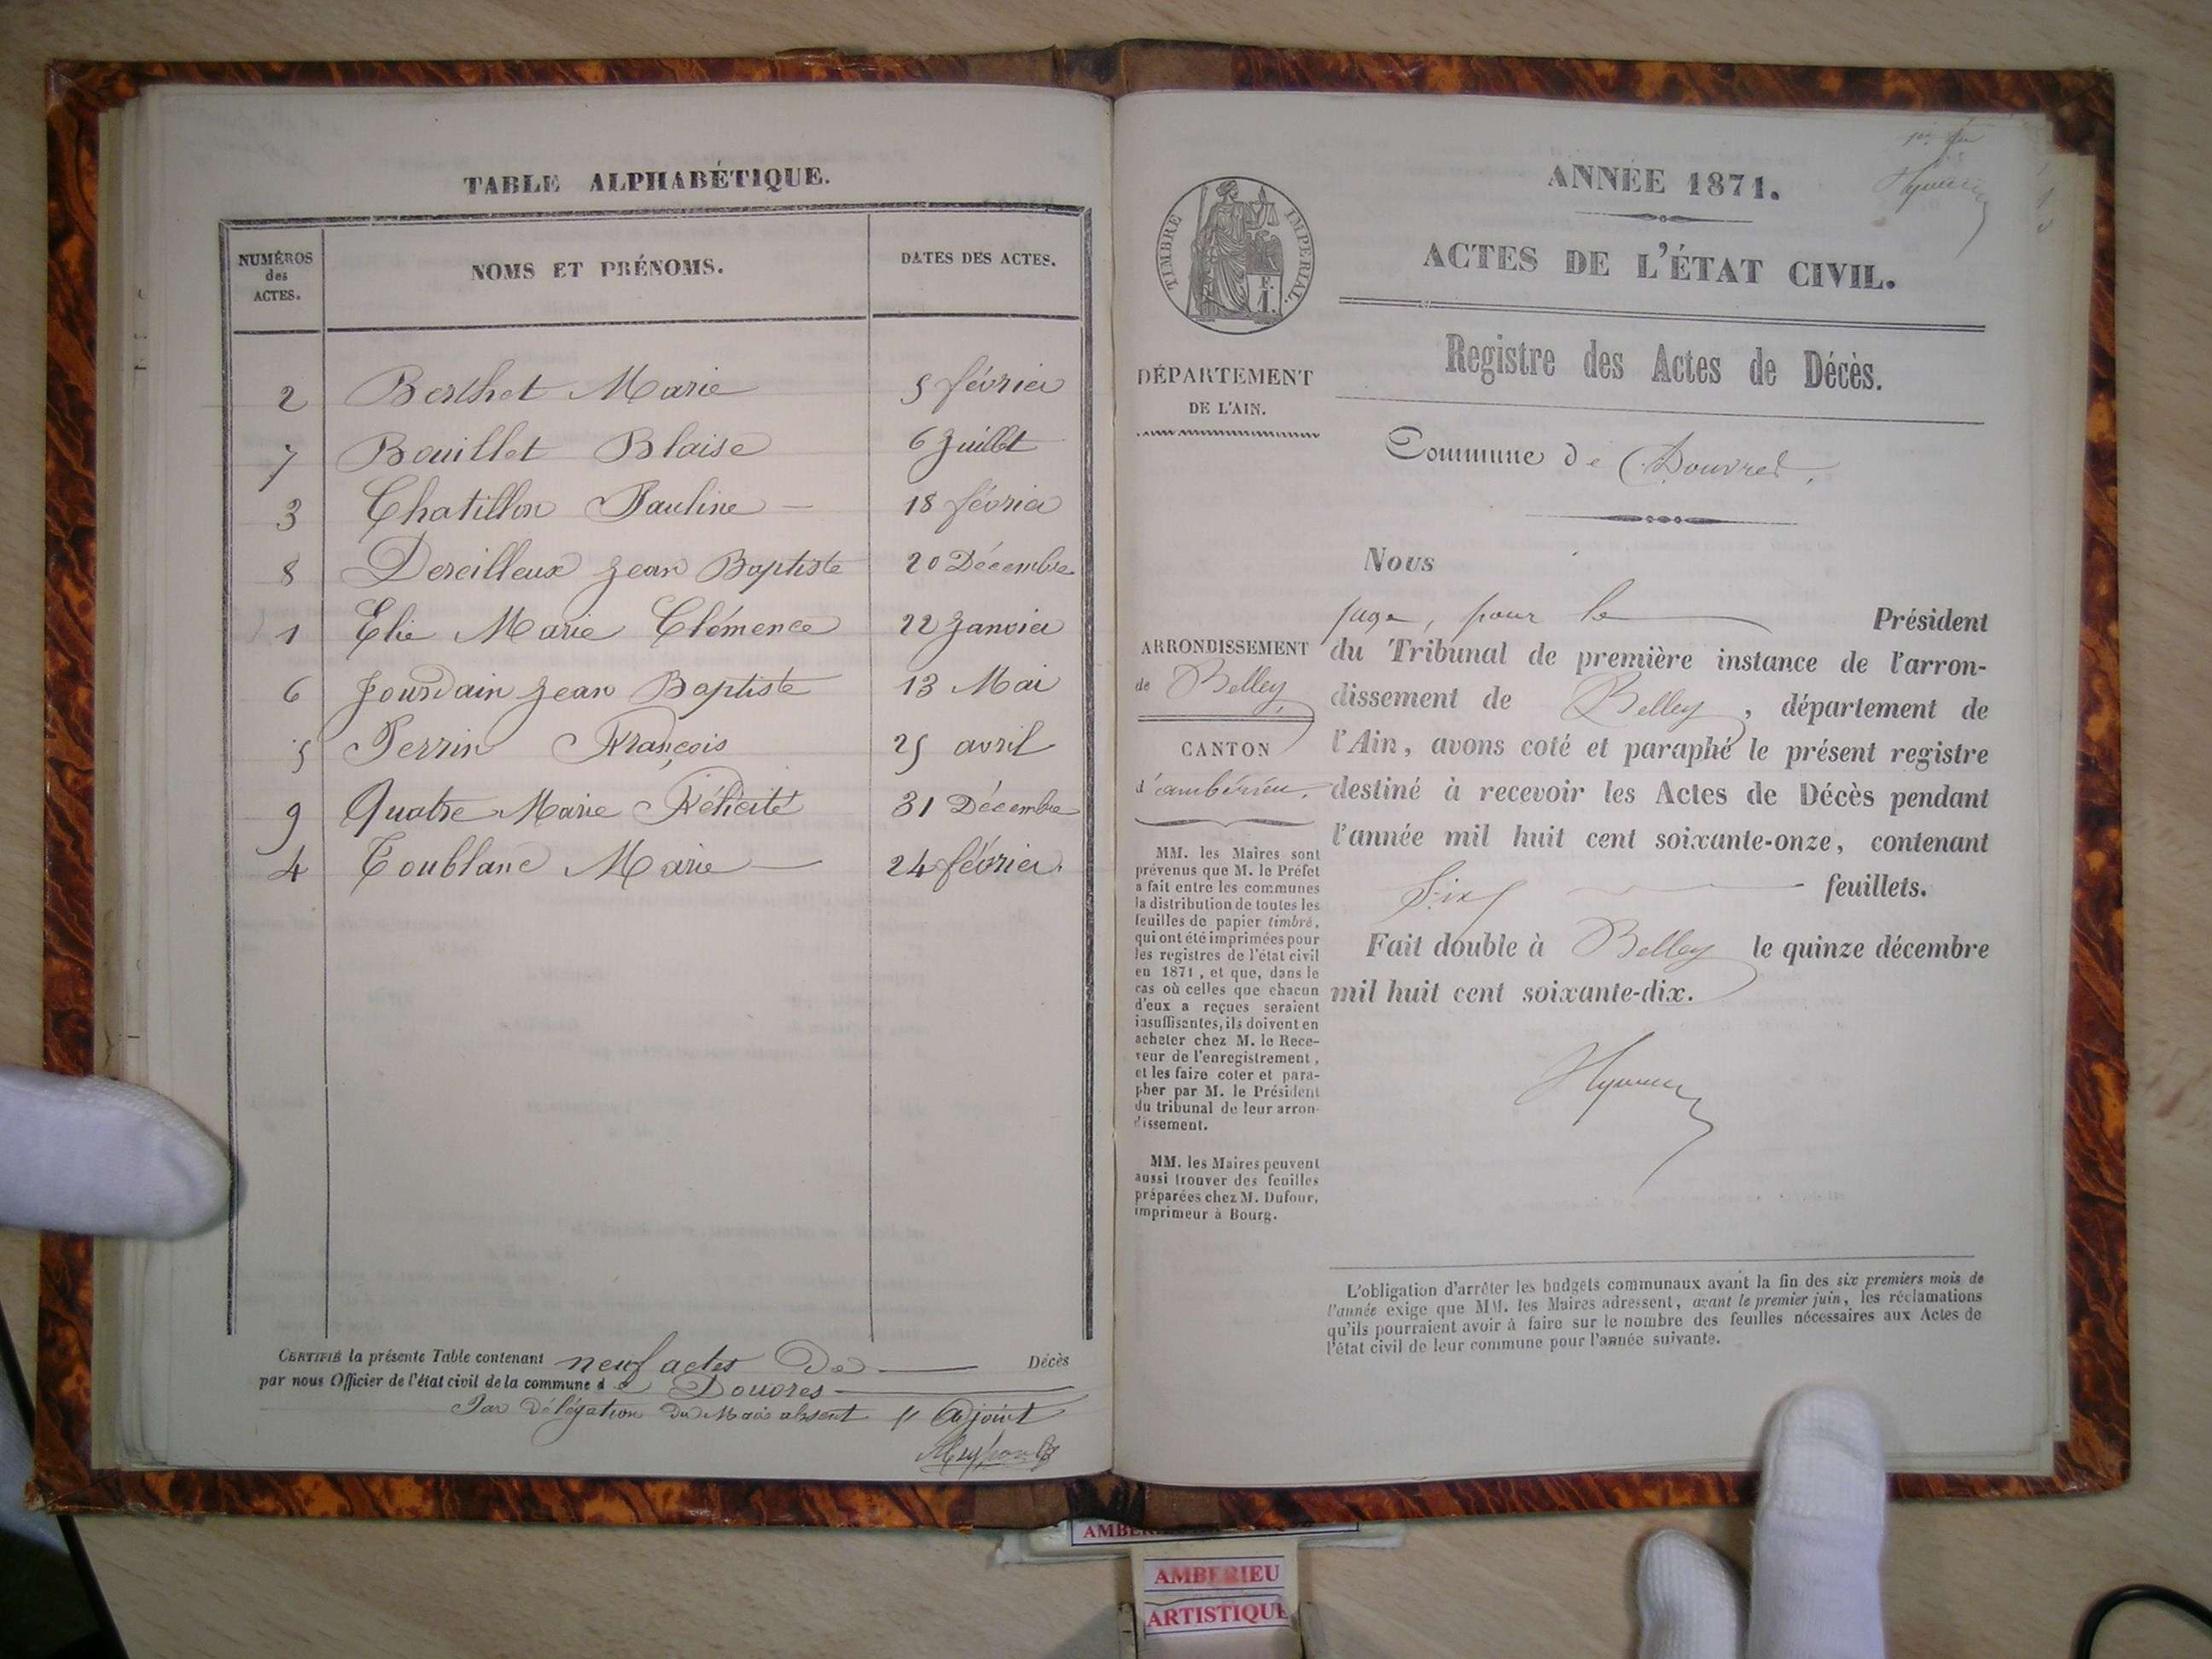 TABLE ALPHABÉTIQUE.
NUMÉROS des ACTES.
NOMS ET PRÉNOMS.
DATES DES ACTES.
2 Berthet Marie 5 février
7 Bouillet Blaise 6 Juillet
3 Chatillon Pauline — 18 février
8 Dereilleux Jean Baptiste 20 Décembre
1 Elie Marie Clémence 22 Janvier
6 Jourdain Jean Baptiste 13 Mai
5 Perrin François 25 avril
9 Quatre Marie Félicité 31 Décembre
4 Toublanc Marie — 24 février.
CERTIFIÉ la présente Table contenant neuf actes De — Décès
par nous Officier de l'état civil de la commune de Douvres —
Par délégation du Maire absent l'Adjoint
TIMBRE IMPERIAL.
F.
1.
DÉPARTEMENT
DE L'AIN.
ARRONDISSEMENT
de Belley
CANTON
d'ambérieu.
MM. les Maires sont
prévenus que M. le Préfet
a fait entre les communes
la distribution de toutes les
feuilles de papier timbré,
qui ont été imprimées pour
les registres de l'état civil
en 1871, et que, dans le
cas où celles que chacun
d'eux a reçues seraient
insuffisantes, ils doivent en
acheter chez M. le Rece-
veur de l'enregistrement,
et les faire coter et para-
pher par M. le Président
du tribunal de leur arron-
dissement.
MM. les Maires peuvent
aussi trouver des feuilles
préparées chez M. Dufour,
imprimeur à Bourg.
ANNÉE 1871.
ACTES DE L'ÉTAT CIVIL.
Registre des Actes de Décès.
Commune de Douvres.
Nous
juge, pour le — Président
du Tribunal de première instance de l'arron-
dissement de Belley, département de
l'Ain, avons coté et paraphé le présent registre
destiné à recevoir les Actes de Décès pendant
l'année mil huit cent soixante-onze, contenant
Six — feuillets.
Fait double à Belley le quinze décembre
mil huit cent soixante-dix.
L'obligation d'arrêter les budgets communaux avant la fin des six premiers mois de
l'année exige que MM. les Maires adressent, avant le premier juin, les réclamations
qu'ils pourraient avoir à faire sur le nombre des feuilles nécessaires aux Actes de
l'état civil de leur commune pour l'année suivante.
AMBERIEU
ARTISTIQUE